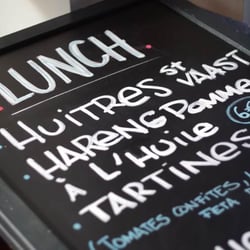 LUNCH
HUITRES St VAAST
HARENG POMME
À L'HUILE
TARTINES
(TOMATES CONFITES,
FETA